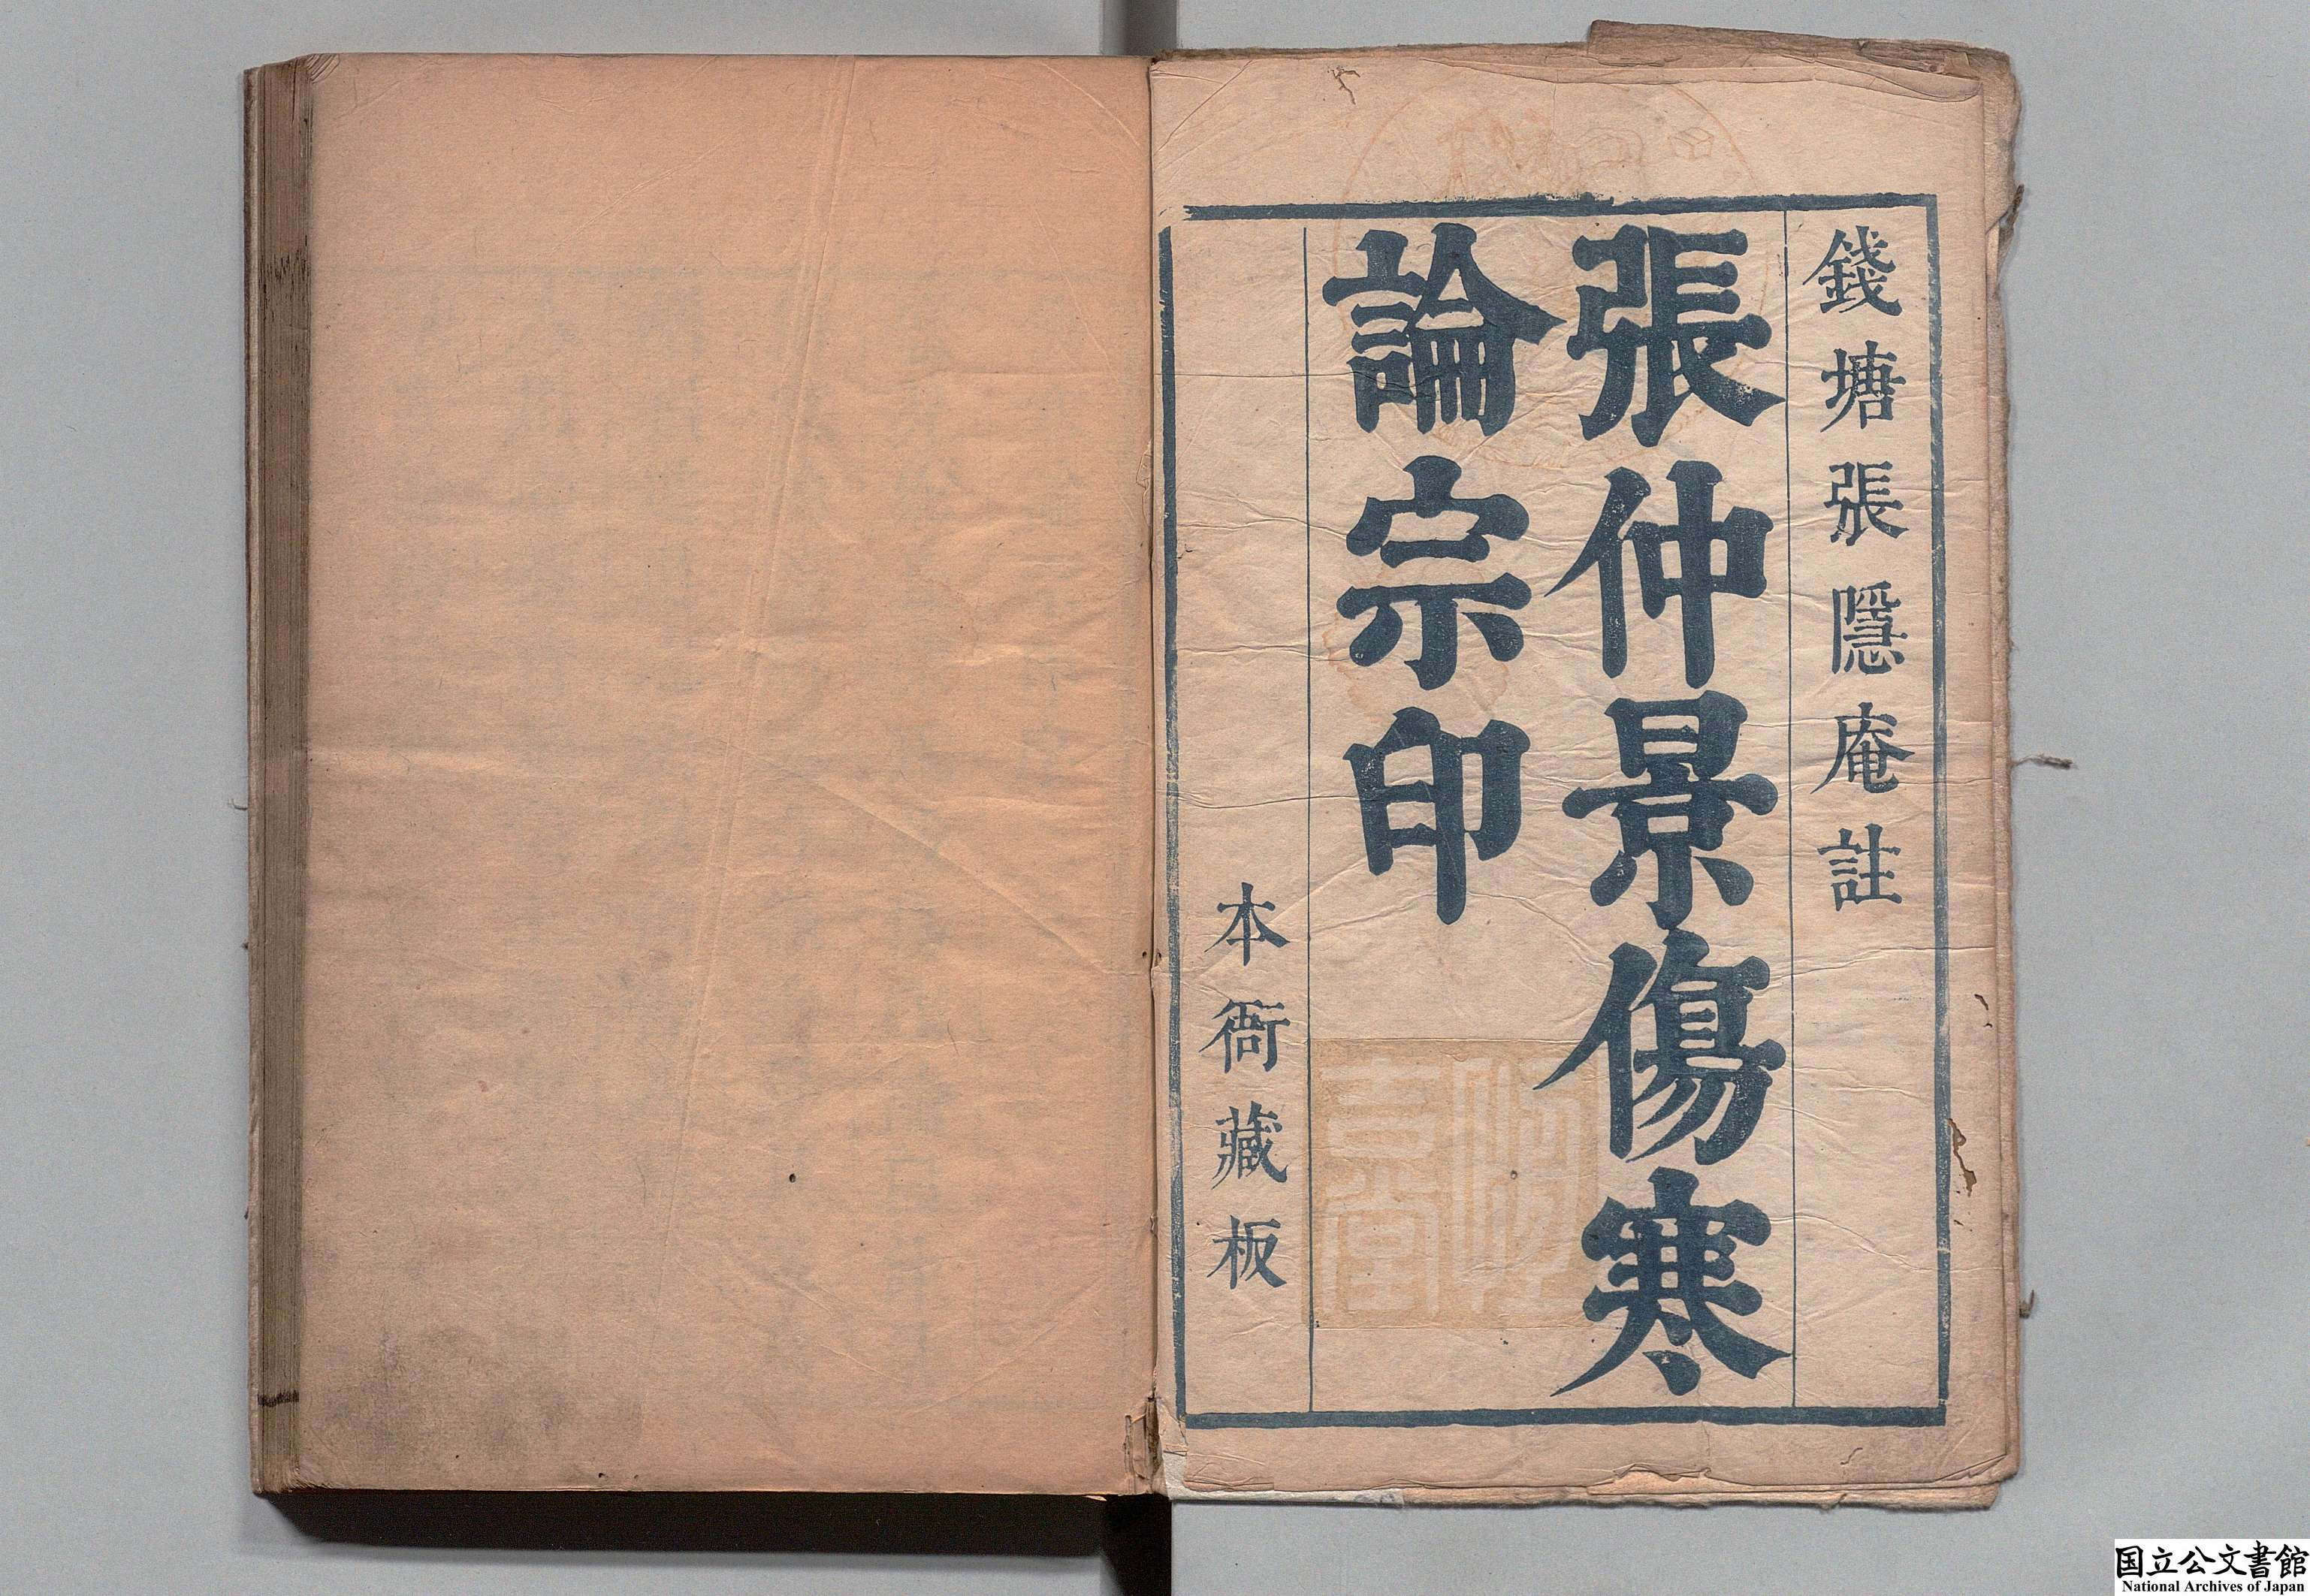 錢塘張隱庵註
張仲景傷寒
論宗印
本衙藏板
国立公文書館
National Archives of Japan